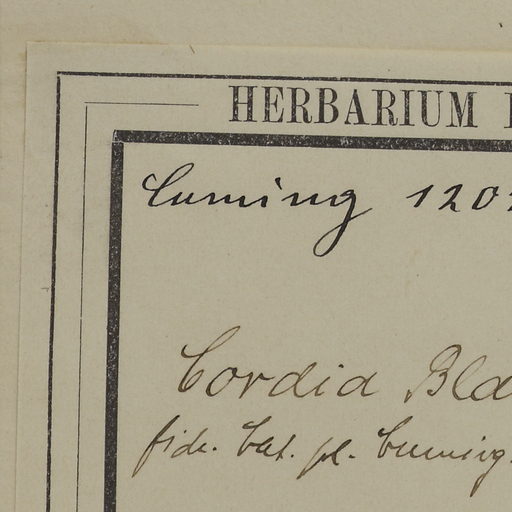 HERBARIUM
Cuming 120
Cordia Bla
fide. Cat. pl. Cuming.